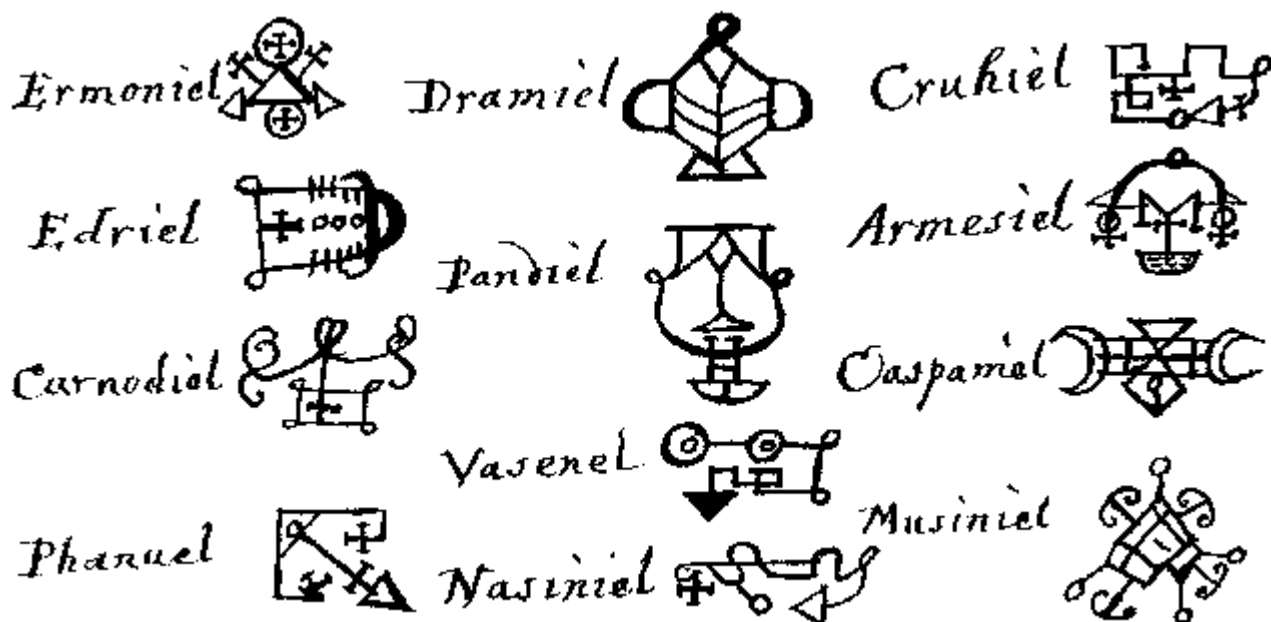 Ermoniel
Edriel
Carnodiel
Phanuel
Dramiel
Pandiel
Vasenel
Nasiniel
Cruhiel
Armesiel
Oaspamiel
Musiniel